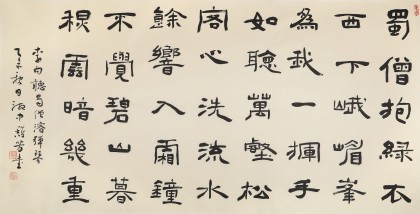 蜀僧抱綠衣
西下峨嵋峯
為我一揮手
如聽萬壑松
客心洗流水
餘響入霜鐘
不覺碧山暮
秋雲暗幾重
李白聽蜀僧濬彈琴
秋日
書